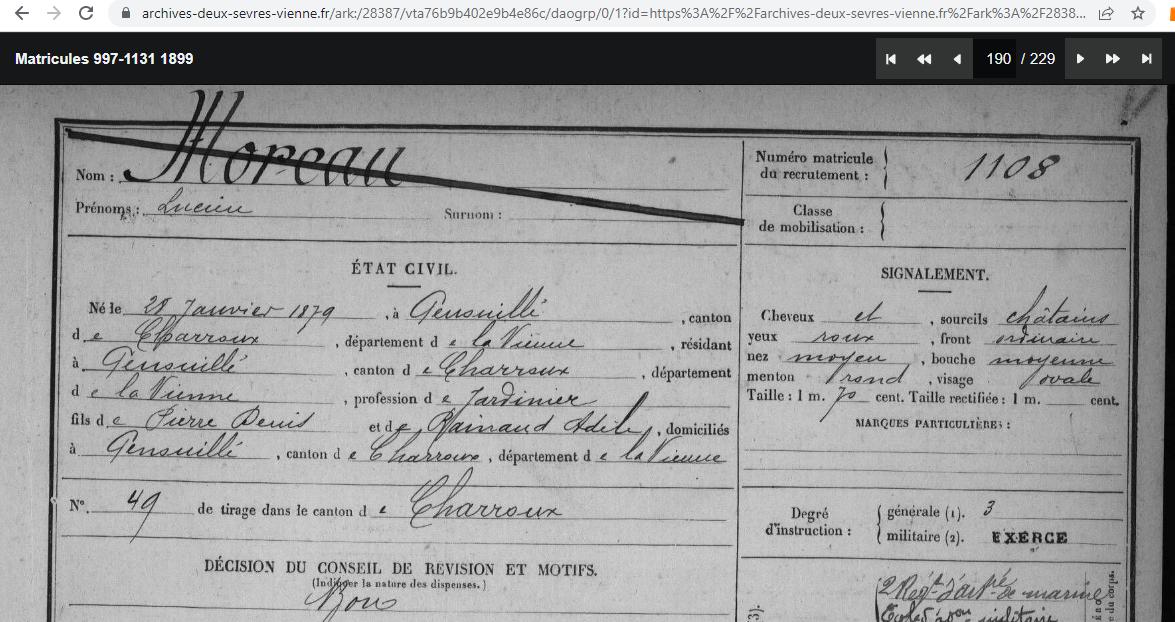 archives-deux-sevres-vienne.fr/ark:/28387/vta76b9b402e9b4e86c/daogrp/0/1?id=https%3A%2F%2Farchives-deux-sevres-vienne.fr%2Fark%3A%2F2838...
Matricules 997-1131 1899
190 / 229
Nom : Moreau
Prénoms : Lucien Surnom :
Numéro matricule du recrutement : 1108
Classe de mobilisation :
ÉTAT CIVIL.
Né le 28 Janvier 1879, à Genouillé, canton
de Charroux, département de la Vienne, résidant
à Genouillé, canton de Charroux, département
de la Vienne, profession de Jardinier
fils de Pierre Denis et de Rainaud Adèle, domiciliés
à Genouillé, canton de Charroux, département de la Vienne
N° 49 de tirage dans le canton de Charroux
DÉCISION DU CONSEIL DE REVISION ET MOTIFS.
(Indiquer la nature des dispenses.)
Bon
SIGNALEMENT.
Cheveux et, sourcils châtains
yeux roux, front ordinaire
nez moyen, bouche moyenne
menton rond, visage ovale
Taille : 1 m. 70 cent. Taille rectifiée : 1 m. cent.
MARQUES PARTICULIÈRES :
Degré d'instruction :
générale (1). 3
militaire (2). EXERCÉ
2 Régt d'artrie de marine
militaire
du corps.